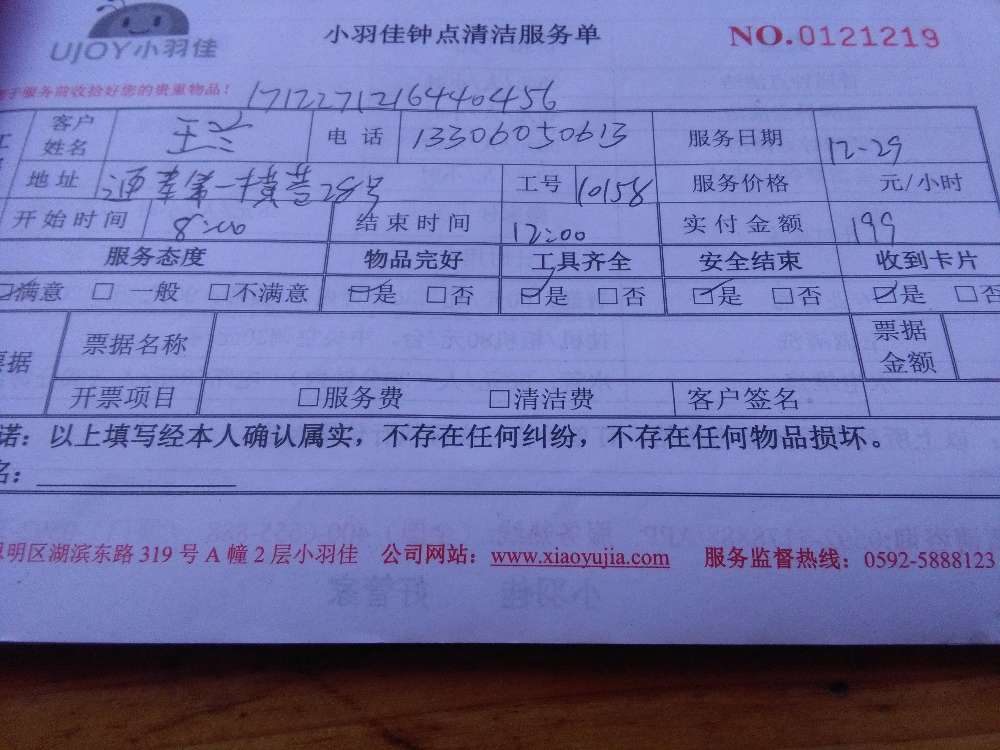 UJOY小羽佳
小羽佳钟点清洁服务单
NO.0121219
服务前收拾好您的贵重物品！
1712271216440456
客户姓名 王兰 电话 13306050613 服务日期 12-29
地址 28号 工号 10158 服务价格 元/小时
开始时间 8:00 结束时间 12:00 实付金额 199
服务态度 物品完好 工具齐全 安全结束 收到卡片
☑满意 □一般 □不满意 ☑是 □否 ☑是 □否 ☑是 □否 ☑是 □否
票据 票据名称 票据金额
开票项目 □服务费 □清洁费 客户签名
诺：以上填写经本人确认属实，不存在任何纠纷，不存在任何物品损坏。
名：
明区湖滨东路319号A幢2层小羽佳 公司网站：www.xiaoyujia.com 服务监督热线：0592-5888123